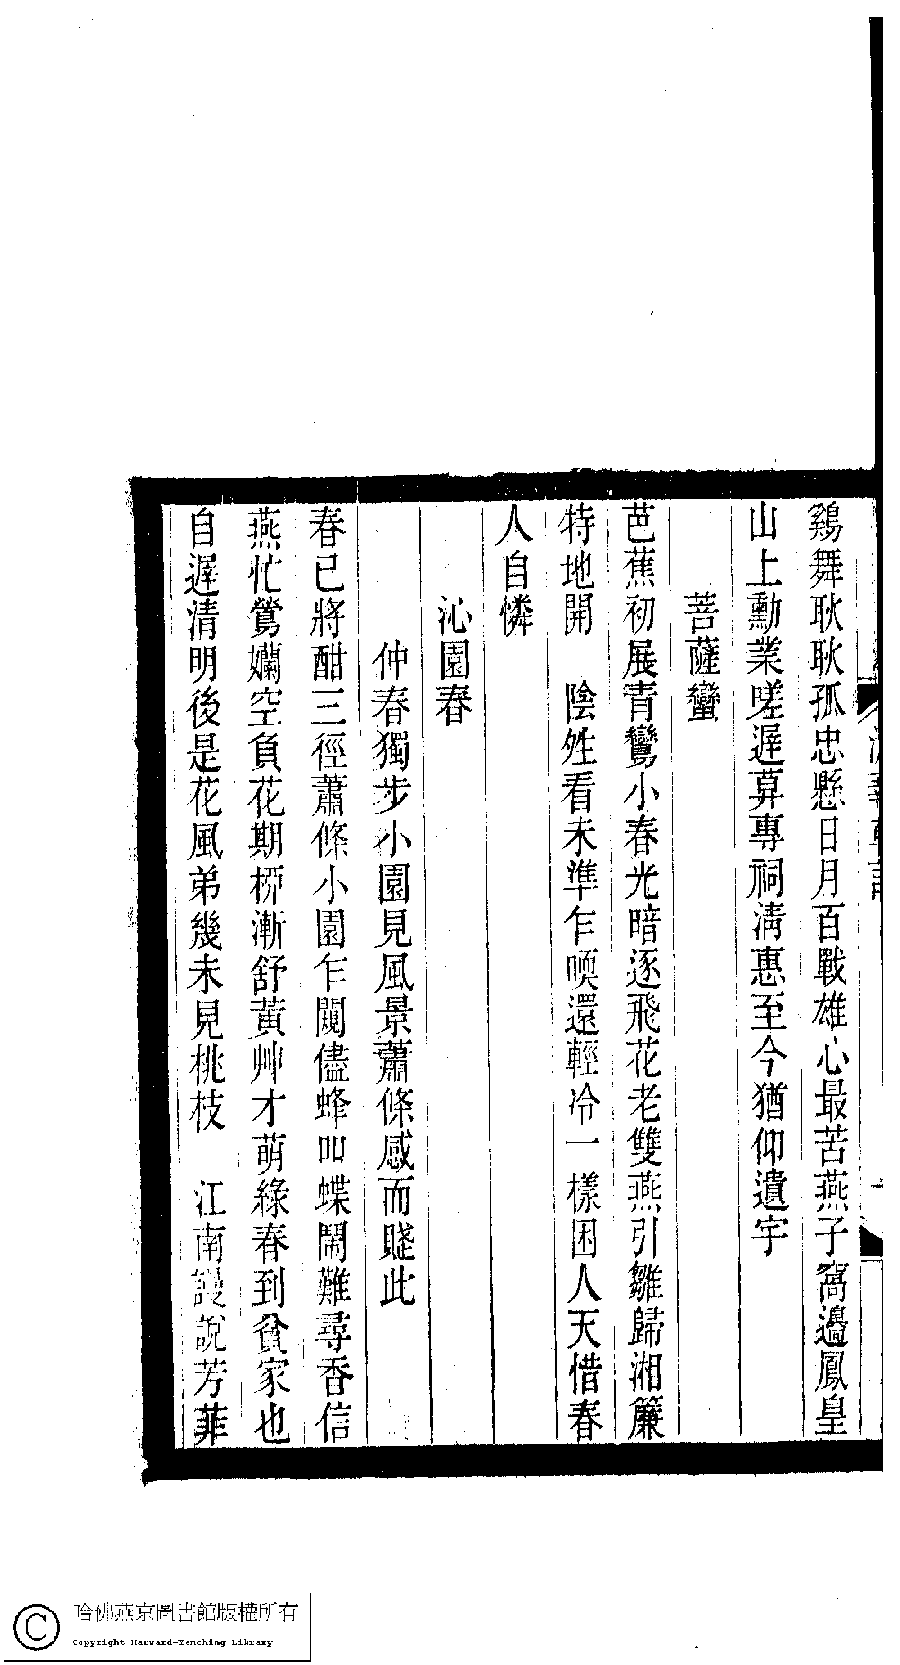 鷄舞耿耿孤忠懸日月百戰雄心最苦燕子窩邊鳳皇
山上勳業嗟遲葊專祠淸惠至今猶仰遺宇
菩薩蠻
芭蕉初展青鸞小春光暗逐飛花老雙燕引雛歸湘簾
特地開　陰姓看未準乍喚還輕冷一樣困人天惜春
人自憐
沁園春
仲春獨步小園見風景蕭條感而賤此
春已將酣三徑蕭條小園乍闌儘蜂叫蝶鬧難尋香信
燕忙鶯嬾空負花期桺漸舒黃艸才萌綠春到貧家也
自遲清明後是花風弟幾未見桃枝　江南謾說芳菲
哈佛燕京圖書館版權所有
Copyright Harvard-Yenching Library